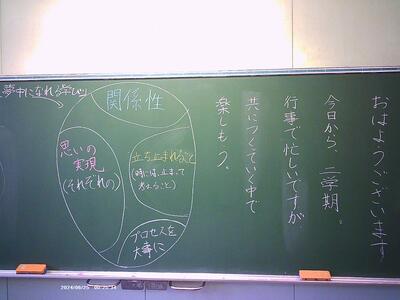 おはようございます
今日から、二学期。
行事で忙しいですが
共につくっていく中で
楽しもう。
夢中になれる学び
関係性
立ち止まれること
(時には、止まって
考えること)
思いの
実現
(それぞれの)
プロセスを
大事に
2024/08/25 00:25:34